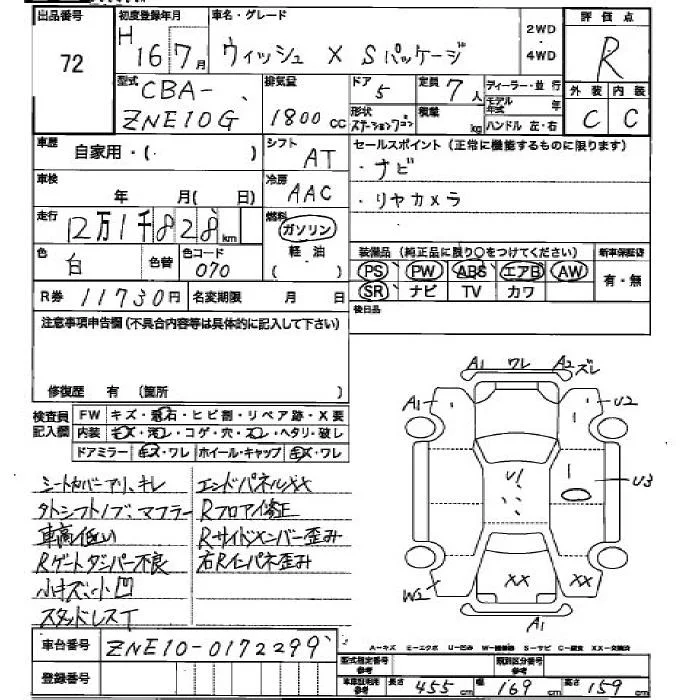 出品番号 初度登録年月 車名・グレード 評価点
72 H 16 7月 ウィッシュ X Sパッケージ 2WD・4WD R
型式 CBA-ZNE10G 排気量 1800cc ドア 5 定員 7人 ディーラー・並行 外装 内装
形状 ステーションワゴン 積載 kg モデル年式 年 ハンドル 左・右 C C
車歴 自家用・( ) シフト AT セールスポイント(正常に機能するものに限ります)
・ナビ
車検 年 月( 日) 冷房 AAC ・リヤカメラ
走行 12万1千828km 燃料 ガソリン 軽油
色 白 色替 色コード 070 装備品(純正品に限り○をつけてください) 新車保証書
PS PW ABS エアB AW 有・無
R券 11730円 名変期限 月 日 SR ナビ TV カワ
後日品
注意事項申告欄(不具合内容等は具体的に記入して下さい)
修復歴 有 (箇所 )
検査員記入欄 FW キズ・飛石・ヒビ割・リペア跡・X要
内装 キズ・汚レ・コゲ・穴・スレ・ヘタリ・破レ
ドアミラー キズ・ワレ ホイール・キャップ キズ・ワレ
シートカバーアリ、キレ
タトシフトノブ、マフラー
車高低い
Rゲートダンパー不良
小キズ、小凹
スタッドレスT
エンドパネルXX
Rフロアイ修正
Rサイドメンバー歪み
右Rインパネ歪み
A1 ワレ A2 ズレ
A1 U2
U1 U3
W2 XX XX
A1
A-キズ E-エクボ U-凹み W-補修跡 S-サビ C-腐食 XX-交換済
車台番号 ZNE10-0172299
型式指定番号 参考 類別区分番号 参考
登録番号 車庫証明用 参考 長さ 455cm 幅 169cm 高さ 159cm